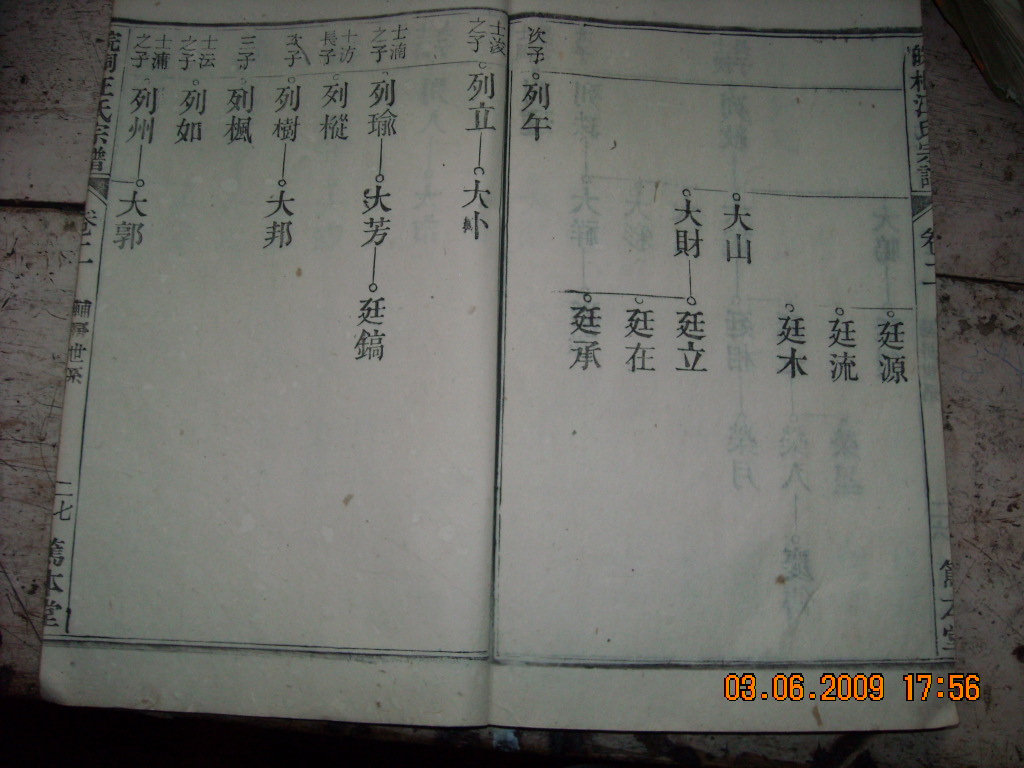 廷源
廷流
廷木
大山
大財
廷立
廷在
廷承
次子
列午
士浚之子
列立
大小
士湳之子
列瑜
大芳
廷鎬
士汸長子
列樅
次子
列樹
大邦
三子
列楓
士沄之子
列如
士濂之子
列州
大郭
皖桐江氏宗譜
卷二
世系
二七
篤本堂
03.06.2009 17:56